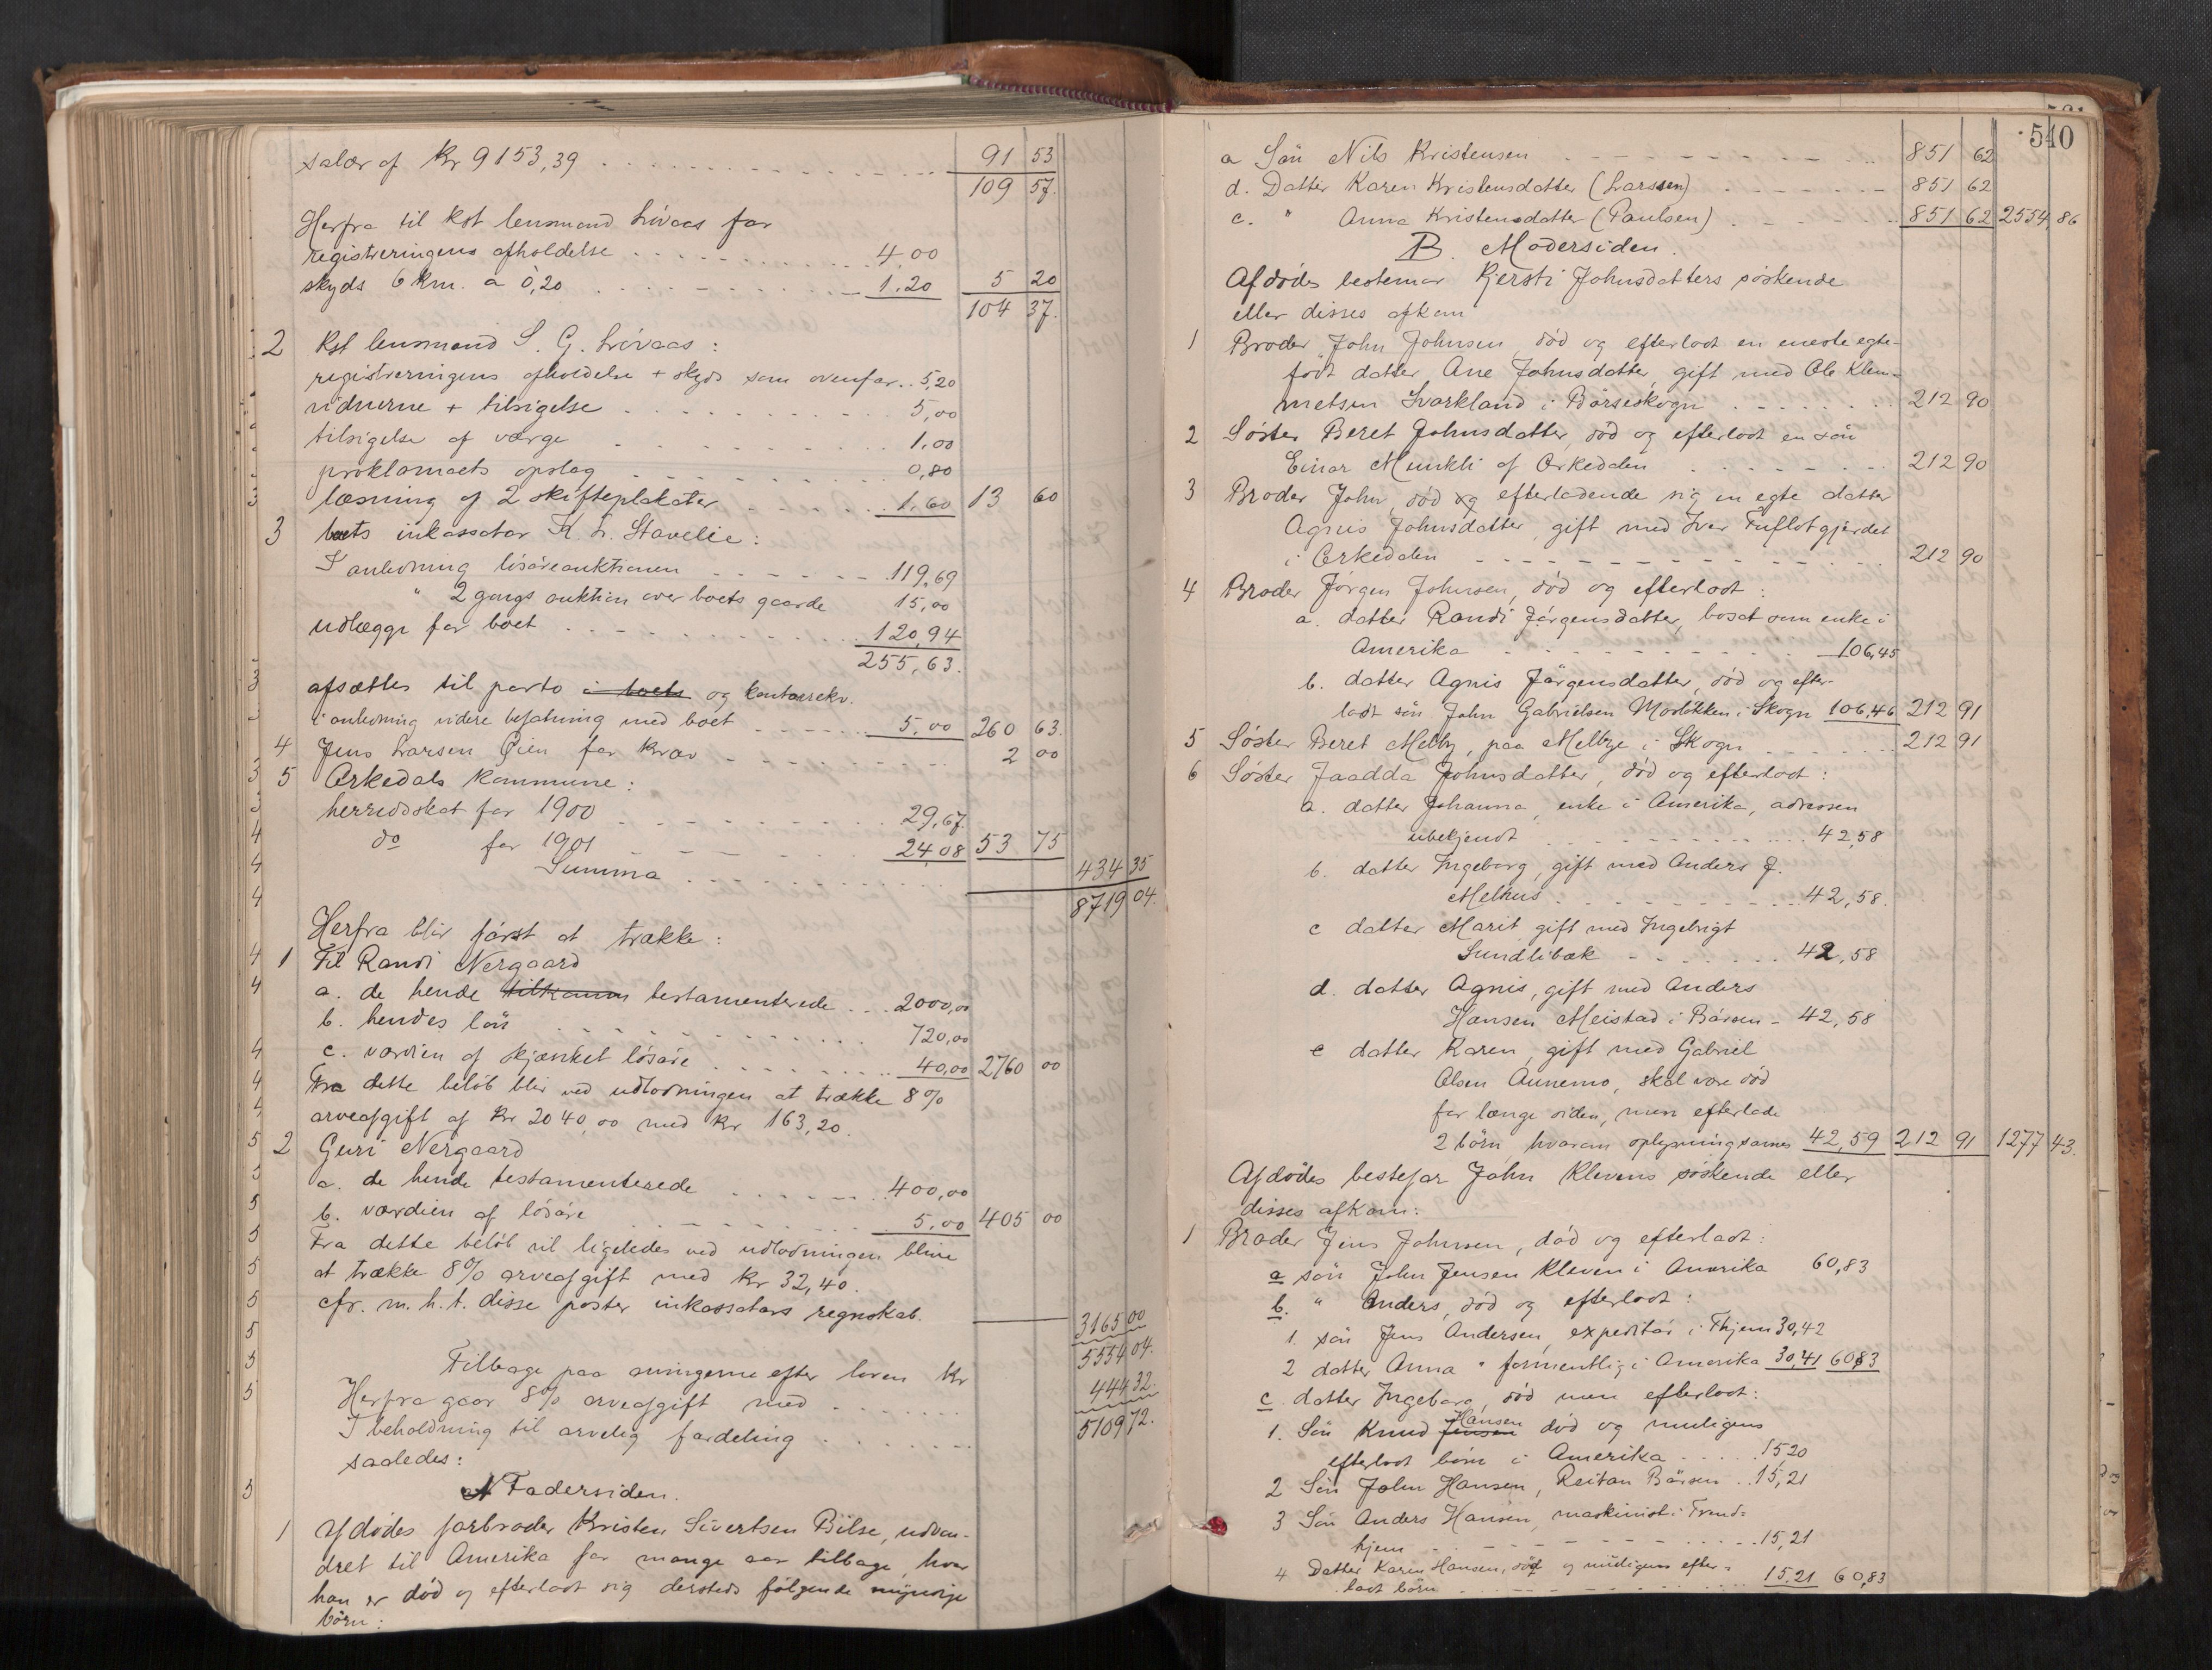 salær of Kr 9153,39 . . . . . . . . . 91 53
109 57.
Herfra til Kst lensmand Lövaas for
registreringens afholdelse . . . . . . 4,00
skyds 6 Km. a 0,20 . . . . . . 1.20 5 20
104 37.
2 Kst lensmand S. G. Lövaas :
registreringens afholdelse + skyds som ovenfor . . 5,20
vidnerne + tilsigelse . . . . . . 5,00
tilsigelse af værge . . . . . . 1.00
proklamaets opslag . . . . . . 0,80
læsning af 2 skifteplakater . . . . 1,60 13 60
3 boets inkassator K. L. Stavelie :
I anledning lösöreauktionen . . . . . . 119,69
" 2 gangs auktion over boets gaarde 15,00
udlægge for boet . . . . . . 120,94
255,63.
afsættes til porto i boets og kontorrekv.
i anledning videre befatning med boet . . . 5,00 260 63.
4 Jens Larsen Öien for krav . . . . . . 2 00
5 Orkedals kommune :
herredsskat for 1900 . . . . . . 29,67.
do for 1901 . . . . . . 24,08 53 75
Summa . . . . . . 434 35
8719 04.
Herfra blir först at trække :
1 Til Randi Nergaard
a. de hende tilkomm testamenterede . . . 2000,00
b. hendes lön . . . . . . 720,00
c. værdien af skjænket lösöre . . . . . . 40,00 2760 00
Fra dette belöb blir ved udlodningen at trække 8%
arveafgift af Kr 2040,00 med Kr 163,20.
2 Guri Nergaard
a. de hende testamenterede . . . . . . 400,00
b. værdien af lösöre . . . . . . 5,00 405 00
Fra dette belöb vil ligeledes ved udlodningen blive
at trække 8% arveafgift med Kr 32,40.
cfr. m. h. t. disse poster inkassators regnskab.
3165 00
Tilbage paa arvingerne efter loven Kr 5554 04.
Herfra gaar 8% arveafgift med . . . . . . 444 32.
I beholdning til arvelig fordeling . . . . . . 5109 72.
saaledes :
A Fadersiden.
1 Afdödes farbroder Kristen Sivertsen Bilse, udvan-
dret til Amerika for mange aar tilbage, hvor
han er död og efterlodt sig dersteds fölgende myndige
börn :
540
a Sön Nils Kristensen . . . . . . 851 62
d. Datter Karen Kristensdatter (Larssen) . . . . . . 851 62
c. " Anna Kristensdatter (Paulsen) . . . . . . 851 62 2554,86
B. Modersiden.
Afdödes bestemor Kjersti Johnsdatters söskende
eller disses afkom
1 Broder John Johnsen död og efterlodt en eneste egte-
födt datter, Ane Johnsdatter, gift med Ole Klem=
metsen Svarkland i Börseskogn . . . . . . 212 90
2 Söster Beret Johnsdatter, död og efterlodt en sön
Einar Munkli af Orkedalen . . . . . . 212 90
3 Broder John, död og efterladende sig en egte datter
Agnis Johnsdatter, gift med Iver Tuflotgjerdet
i Orkedalen . . . . . . 212 90
4 Broder Jörgen Johnsen, död og efterlodt :
a. datter Randi Jörgensdatter, bosat som enke i
Amerika . . . . . . 106,45
b. datter Agnis Jörgensdatter, död og efter-
lodt sön John Gabrielsen Moslikken i Skogn 106,46 212 91
5 Söster Beret Melby, paa Melbye i Skogn . . . . . . 212 91
6 Söster Jaadda Johnsdatter, död og efterlodt :
a. datter Johanna, enke i Amerika, adressen
ubekjendt . . . . . . 42,58
b. datter Ingeborg, gift med Anders J.
Melhus . . . . . . 42,58.
c datter Marit gift med Ingebrigt
Sundlibæk . . . . . . 42,58
d. datter Agnis, gift med Anders
Hansen Meistad i Börsen - 42,58
e datter Karen, gift med Gabriel
Olsen Aunemo, skal være död
for længe siden, men efterlade
2 börn, hvorom oplysning savnes 42,59 212 91 1277 43.
Afdödes bestefar John Klevens söskende eller
disses afkom :
1 Broder Jens Johnsen, död og efterlodt :
a sön John Jensen Kleven i Amerika 60,83
b. " Anders, död og efterlodt :
1. sön Jens Andersen, expeditör i Thjem 30,42
2 datter Anna " formentlig i Amerika 30,41 60,83
c. datter Ingeborg, död men efterlodt :
1. Sön Knud Jensen Hansen död og muligens
efterlodt börn i Amerika . . . . . 15,20
2 Sön John Hansen, Reitan Börsen . . 15,21
3 Sön Anders Hansen, maskinist i Trond=
hjem . . . . . . 15,21
4 Datter Karen Hansen, död og muligens efter=
lodt börn . . . . . . 15,21 60,83